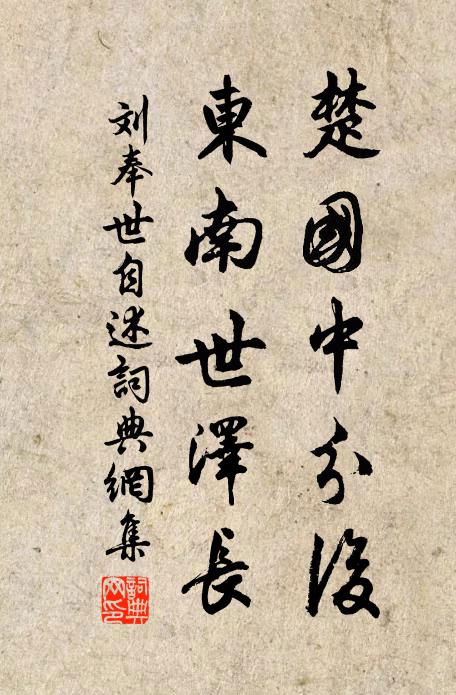 楚國中分後
東南世澤長
刘奉世自述詞典網集
詞典
網印